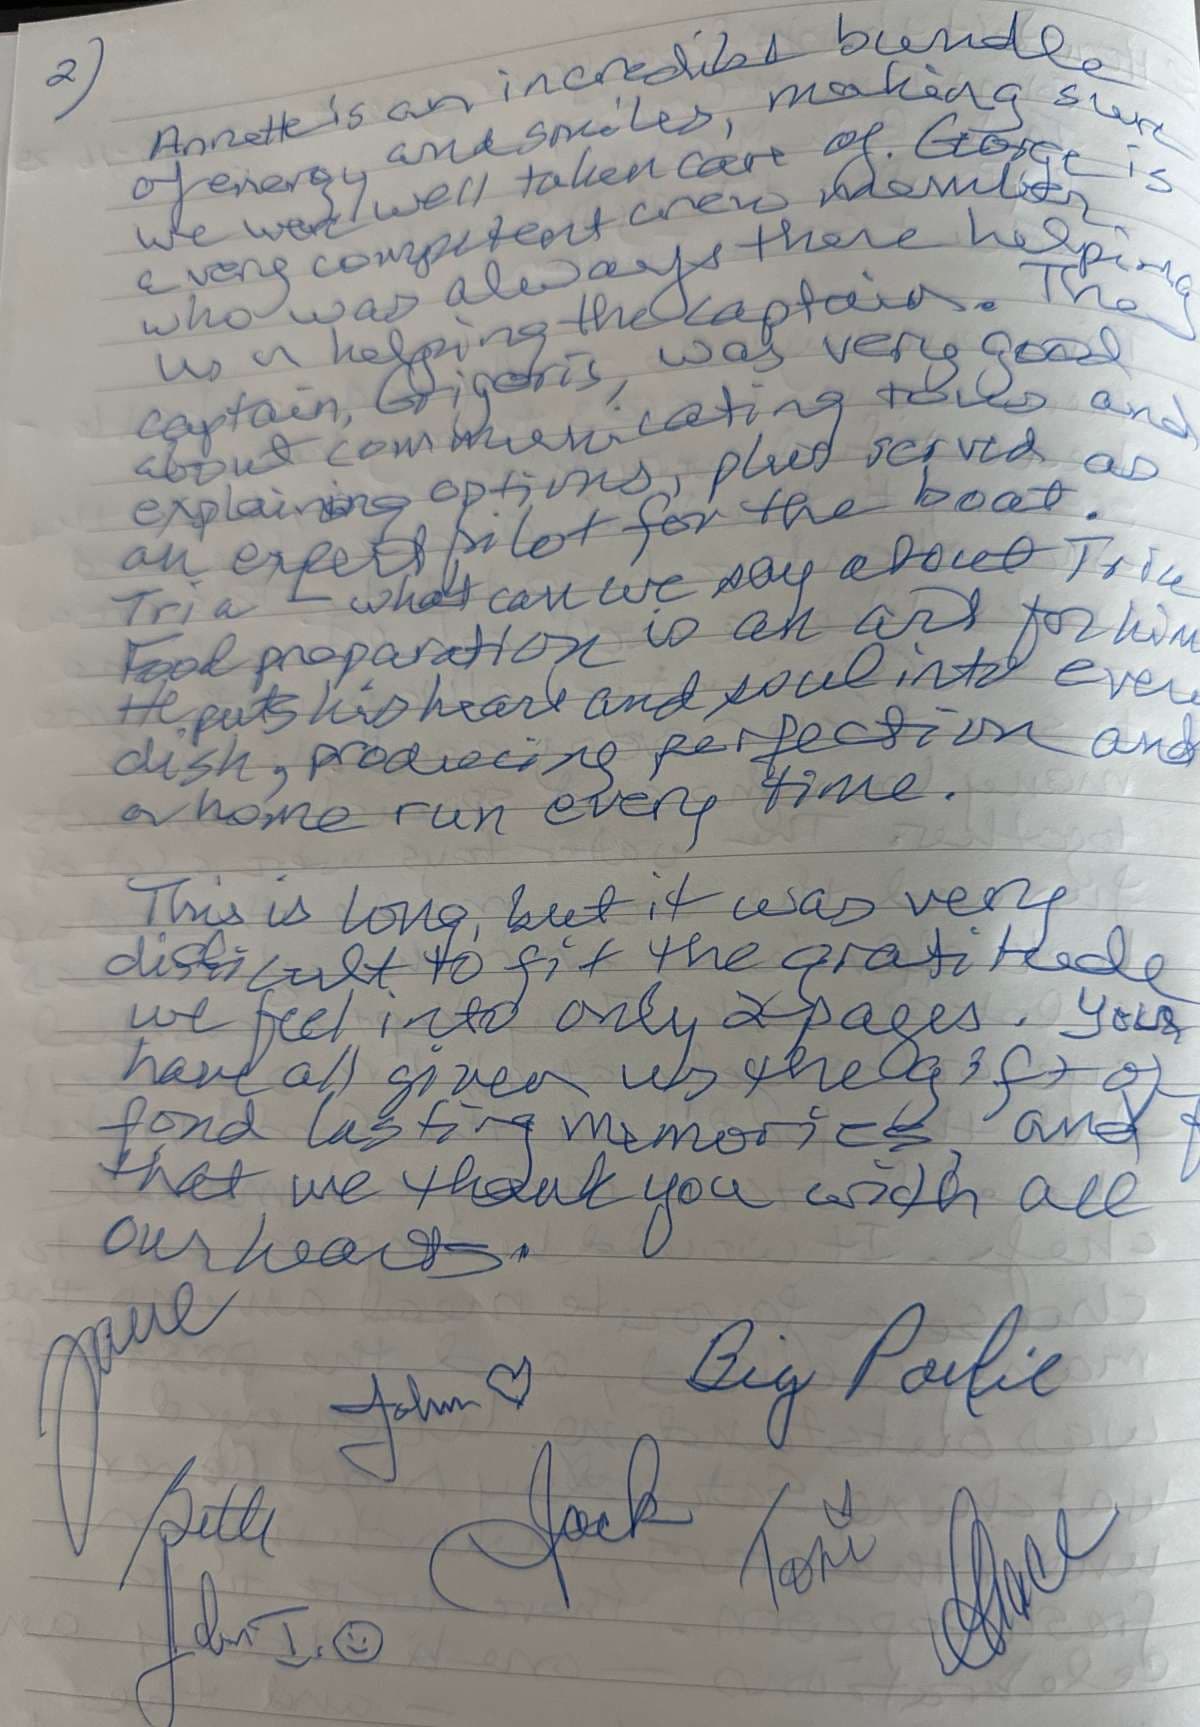 2)
Annette is an incredible bundle
of energy and smiles, making sure
we were well taken care of. George is
a very competent crew member
who was always there helping
us or helping the captain. The
captain, Grigoris, was very good
about communicating to us and
explaining options, plus served as
an expert pilot for the boat.
Tria – what can we say about Tria
Food preparation is an art for him
He puts his heart and soul into every
dish, producing perfection and
a home run every time.
This is long, but it was very
difficult to fit the gratitude
we feel into only 2 pages. You
have all given us the gift of
fond lasting memories, and f
that we thank you with all
our hearts.
Jane
John ♡
Big Paulie
Beth
Jack
Toni
Grace
John I. ☺